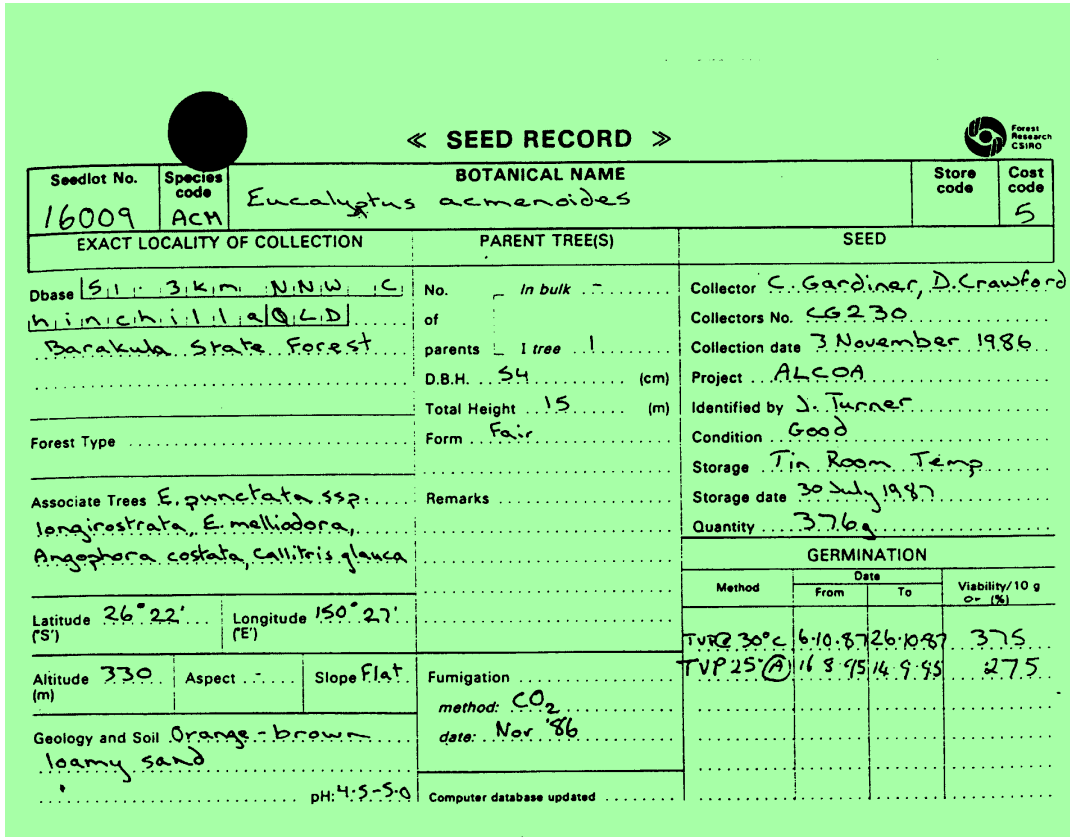 « SEED RECORD »
Forest
Research
CSIRO
Seedlot No. 16009
Species code ACM
BOTANICAL NAME
Eucalyptus acmenoides
Store code
Cost code 5
EXACT LOCALITY OF COLLECTION
Dbase 51.3km NNW C
hinchilla QLD
Barakula State Forest
Forest Type
Associate Trees E. punctata ssp.
longirostrata, E. melliodora,
Angophora costata, Callitris glauca
Latitude 26°22'
("S')
Longitude 150°27'
("E')
Altitude 330
(m)
Aspect -
Slope Flat
Geology and Soil Orange-brown
loamy sand
pH: 4.5-5.0
PARENT TREE(S)
No. In bulk -
of
parents I tree 1
D.B.H. 54 (cm)
Total Height 15 (m)
Form Fair
Remarks
Fumigation
method: CO2
date: Nov '86
Computer database updated
SEED
Collector C. Gardiner, D. Crawford
Collectors No. CG230
Collection date 3 November 1986
Project ALCOA
Identified by J. Turner
Condition Good
Storage Tin Room Temp
Storage date 30 July 1987
Quantity 376g
GERMINATION
Method
Date
From To
Viability/10 g
or (%)
TVP@ 30°C 6.10.87 26.10.87 375
TVP 25° A 16 8 95 14.9.95 275